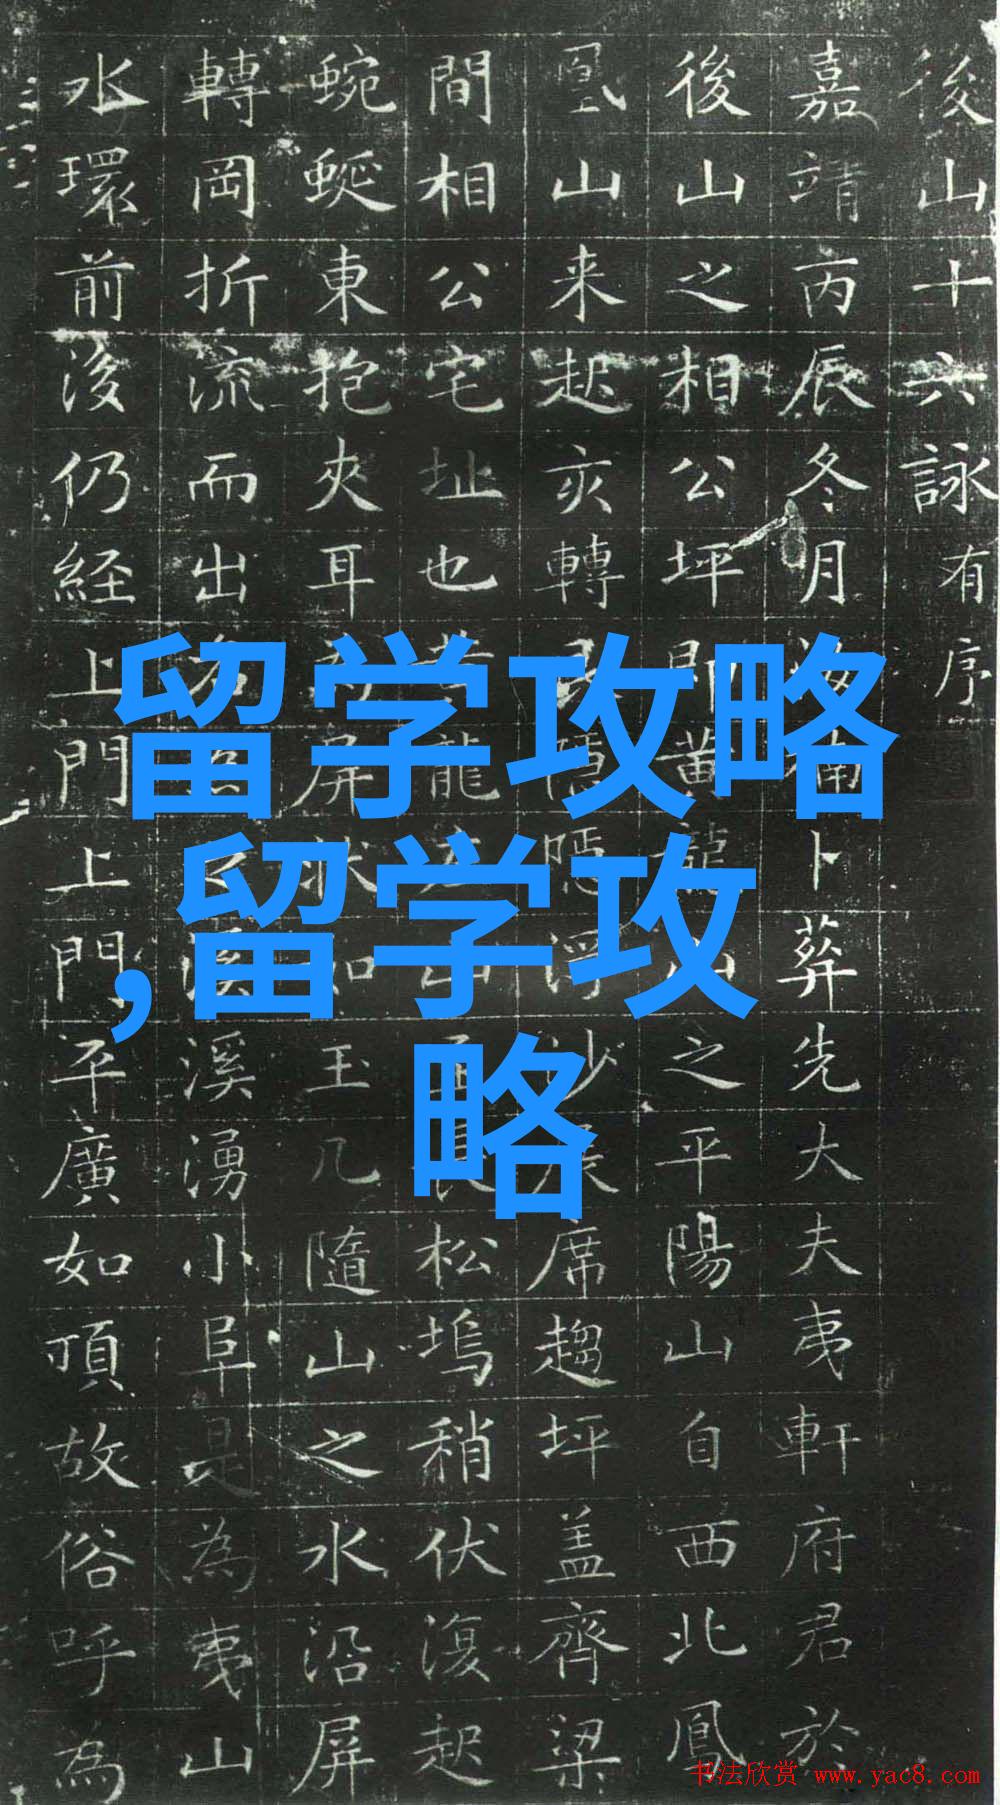 後山十六詠有序
嘉靖丙辰冬月卜葬先大夫夷軒府君於
後山之相公坪即黃龍山之平陽山自西北鳳
凰山来起亥轉隱隱浮沙展席趨坪盖齊梁
間相公宅址也龍山長松塢稍伏復起
蜿蜒東抱夾耳屏狀如玉几隨山之水沿屏
轉岡折流而出溪溪湧小阜是為夷山
水環前後仍経上門上門平廣如頂故俗呼為
留学攻略
,留学攻
略
书法欣赏 www.yac8.com